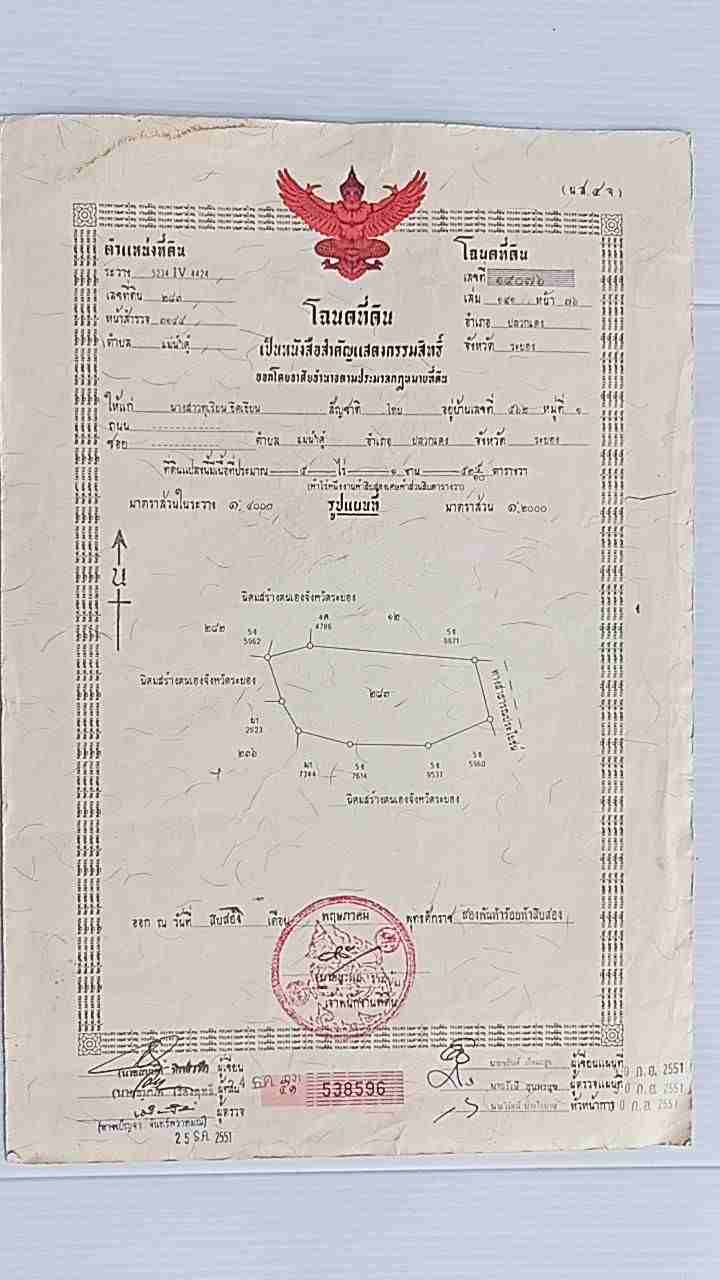 (น.ส. ๔ จ)
ตำแหน่งที่ดิน
ระวาง 5234 IV 4424
เลขที่ดิน ๒๘๓
หน้าสำรวจ ๓๑๔๔
ตำบล แม่น้ำคู้
โฉนดที่ดิน
เลขที่ ๑๔๐๗๖
เล่ม ๑๔๑ หน้า ๗๖
อำเภอ ปลวกแดง
จังหวัด ระยอง
โฉนดที่ดิน
เป็นหนังสือสำคัญแสดงกรรมสิทธิ์
ออกโดยอาศัยอำนาจตามประมวลกฎหมายที่ดิน
ให้แก่ นางสาวทุเรียน สัญชาติ ไทย อยู่บ้านเลขที่ ๕๖๒ หมู่ที่ ๑
ถนน
ซอย ตำบล แม่น้ำคู้ อำเภอ ปลวกแดง จังหวัด ระยอง
ที่ดินแปลงนี้มีเนื้อที่ประมาณ ๕ ไร่ ๑ งาน ตารางวา
(ห้าไร่หนึ่งงานห้าสิบสองเศษห้าส่วนสิบตารางวา)
มาตราส่วนในระวาง ๑:๔๐๐๐ รูปแผนที่ มาตราส่วน ๑:๒๐๐๐
น
นิคมสร้างตนเองจังหวัดระยอง
๒๘๒ 5จ 5962 4786 ๑๒ 5จ
นิคมสร้างตนเองจังหวัดระยอง
๒๘๓
ทางสาธารณประโยชน์
2023
๒๓๖
7344 5จ 7614 5จ 9537 5จ 5960
นิคมสร้างตนเองจังหวัดระยอง
ออก ณ วันที่ สิบสอง เดือน พฤษภาคม พุทธศักราช สองพันห้าร้อยห้าสิบสอง
เจ้าพนักงานที่ดิน
ผู้เขียน
ผู้ตรวจ
25 ธ.ค. 2551
538596
ผู้เขียนแผนที่ ก.ย. 2551
ผู้ตรวจแผนที่ ก.ย. 2551
หัวหน้าการ ก.ย. 2551